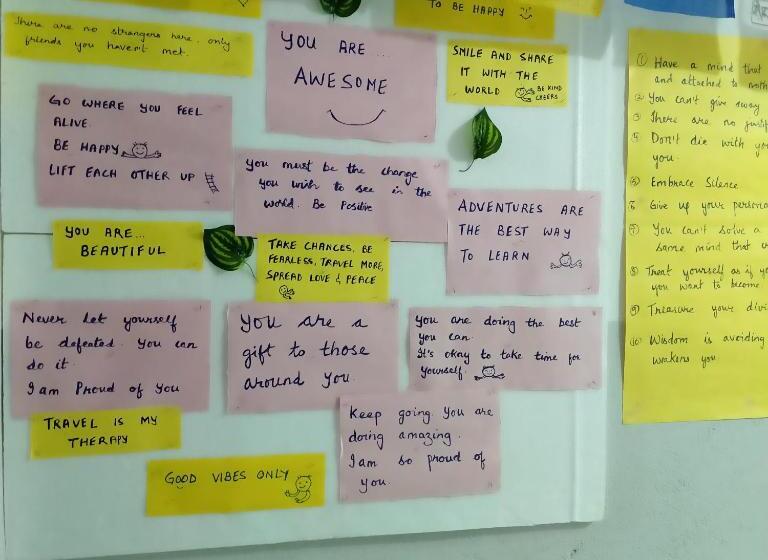 TO BE HAPPY
There are no strangers here. only
friends you haven't met.
YOU ARE ...
AWESOME
SMILE AND SHARE
IT WITH THE
WORLD
BE KIND
CHEERS
GO WHERE YOU FEEL
ALIVE.
BE HAPPY
LIFT EACH OTHER UP
You must be the change
you wish to see in the
world. Be Positive
ADVENTURES ARE
THE BEST WAY
TO LEARN
YOU ARE...
BEAUTIFUL
TAKE CHANCES, BE
FEARLESS, TRAVEL MORE,
SPREAD LOVE & PEACE
Never let yourself
be defeated. You can
do it.
I am Proud of You
You are a
gift to those
around you.
You are doing the best
you can.
It's okay to take time for
yourself.
TRAVEL IS MY
THERAPY
Keep going. You are
doing amazing.
I am so proud of
you.
GOOD VIBES ONLY
① Have a mind that
and attached to
② You can't give away
③ There are no
⑤ Don't die with
you.
Embrace Silence
Give up your
⑦ You can't solve a
same mind that
⑧ Treat yourself as if
you want to become
⑨ Treasure your
⑩ Wisdom is avoiding
weakens you.